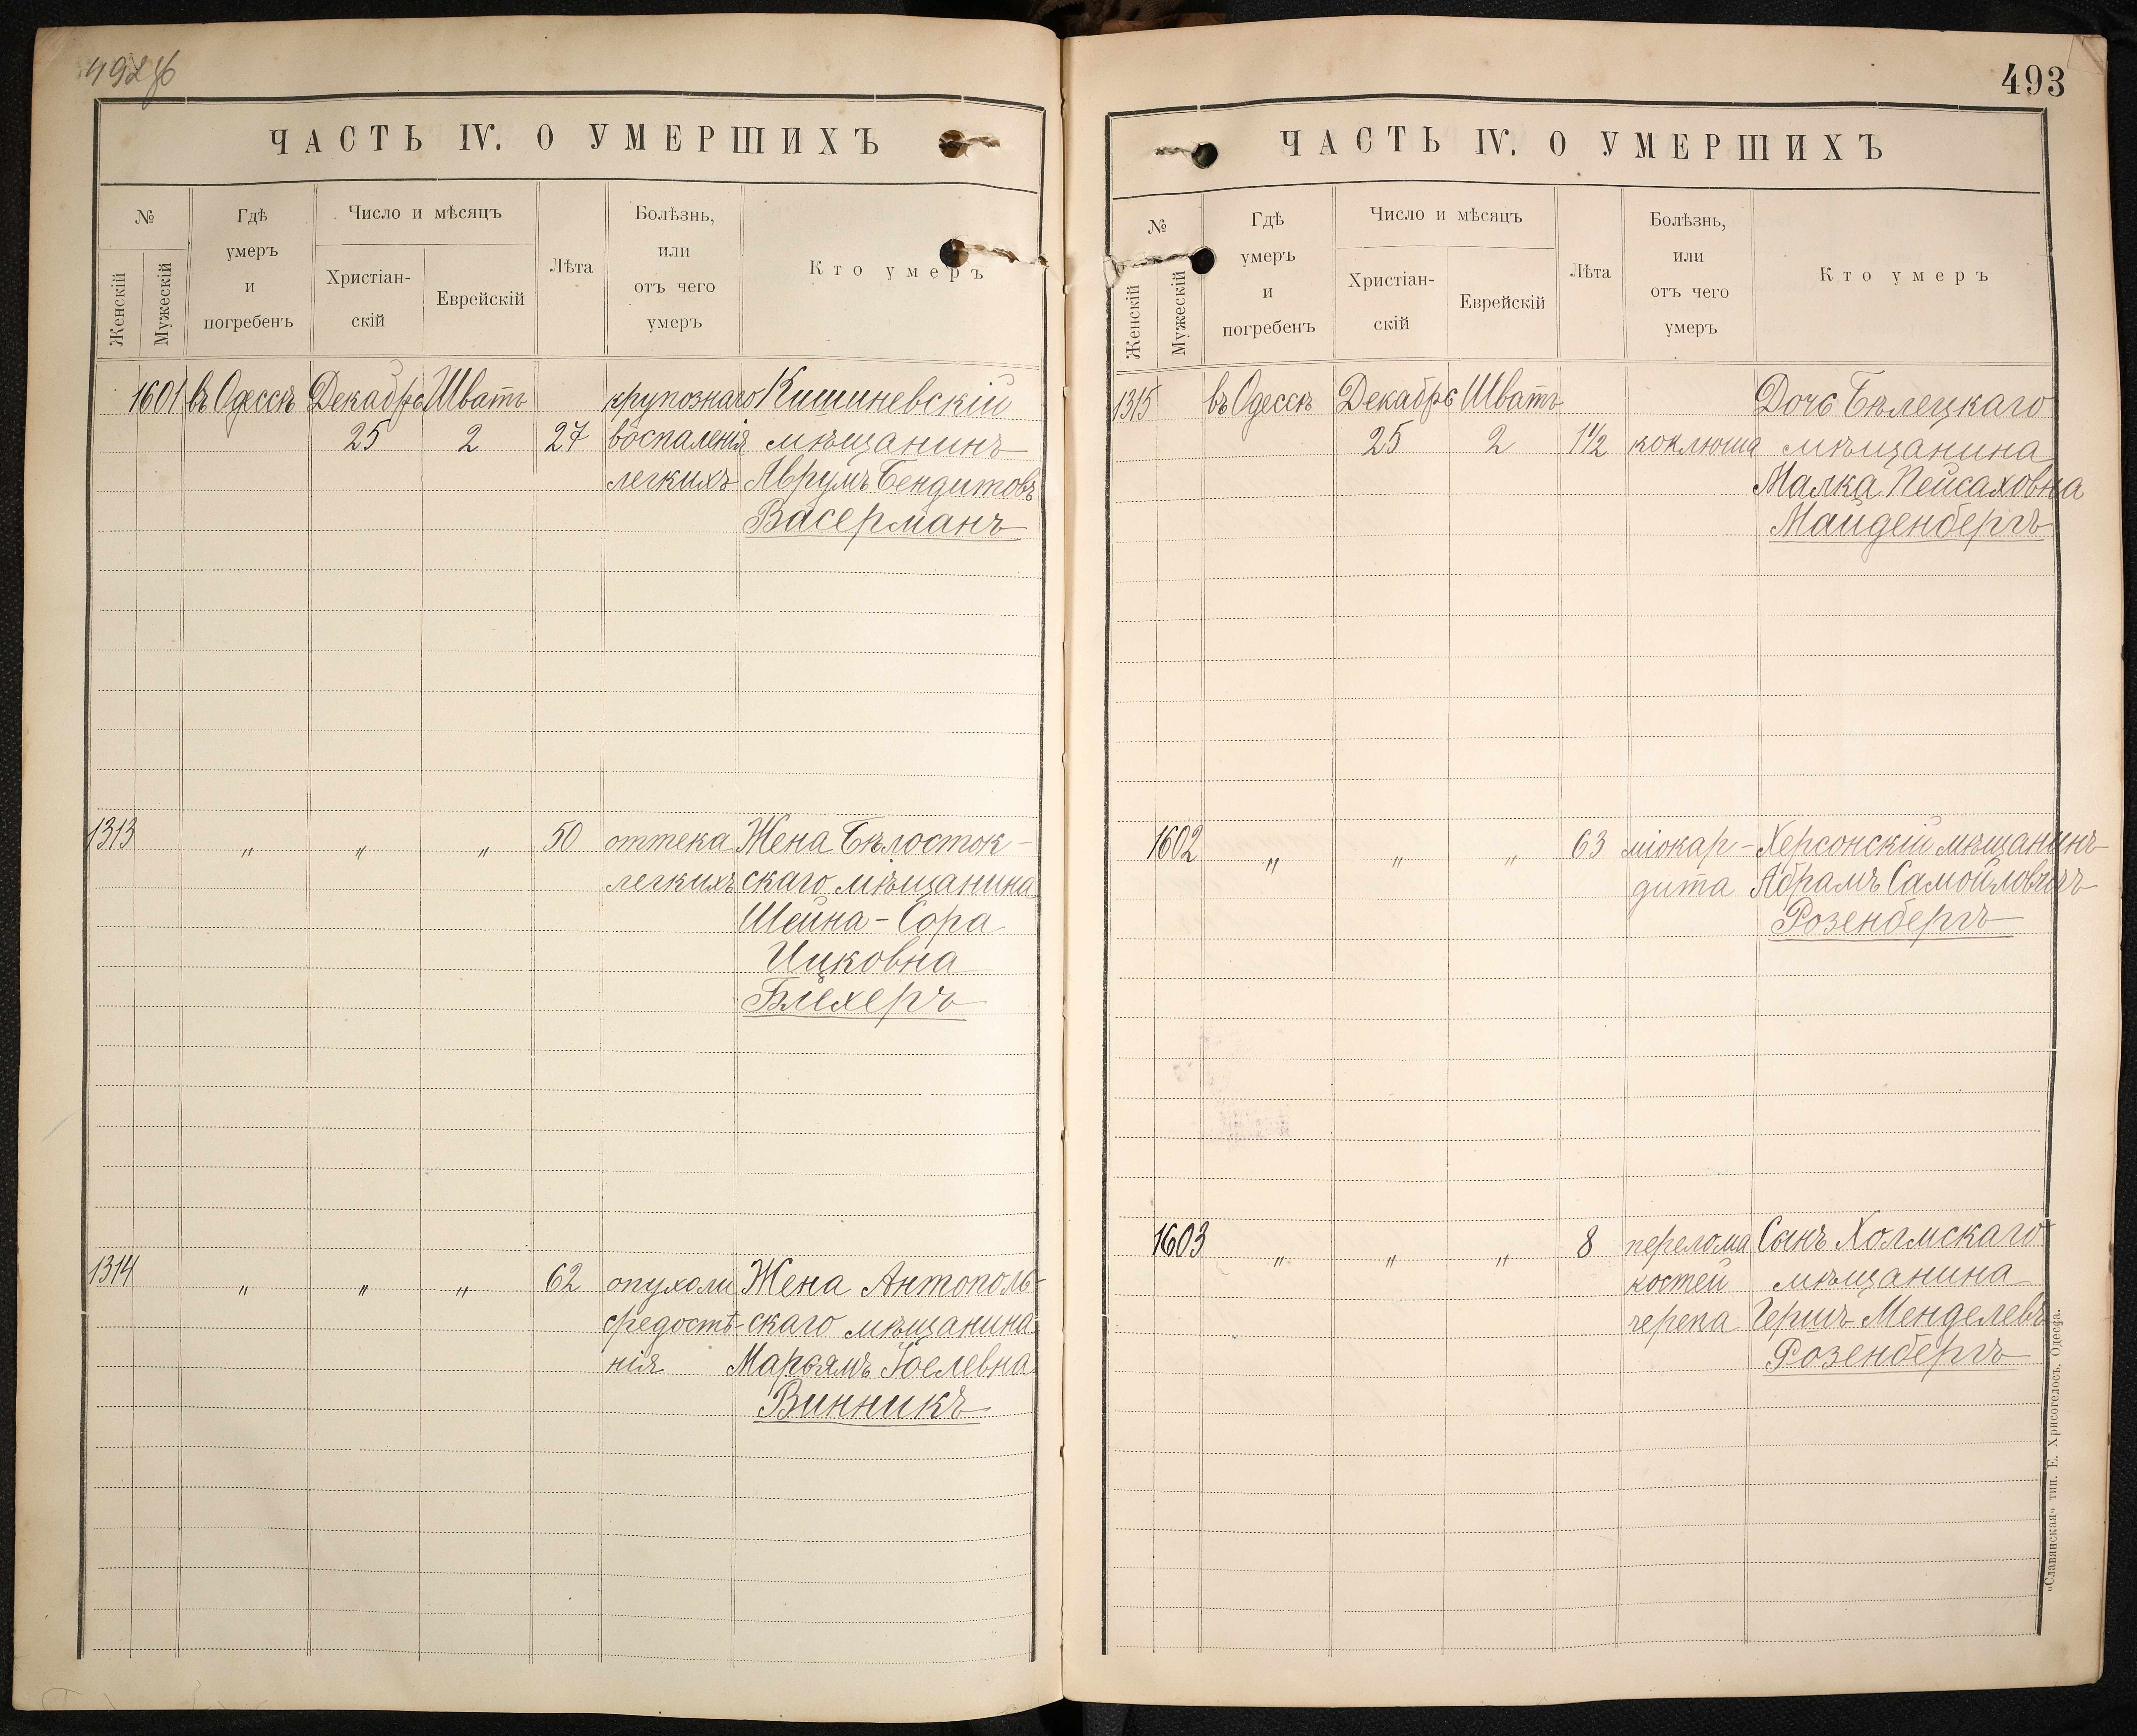 492об
ЧАСТЬ IV. О УМЕРШИХЪ
№
Женскій
Мужескій
Гдѣ
умеръ
и
погребенъ
Число и мѣсяцъ
Христіан-
скій
Еврейскій
Лѣта
Болѣзнь,
или
отъ чего
умеръ
Кто умеръ
1601 въ Одессѣ Декабрь Шватъ крупознаго Кишиневскій
25 2 27 воспаленія мѣщанинъ
легкихъ Аврумъ Бендитовъ
Васерманъ
1313 " " " 50 оттека Жена Бѣлосток-
легкихъ скаго мѣщанина
Шейна-Сора
Ицковна
Блехеръ
1314 " " " 62 опухоли Жена Антополь-
средостѣ- скаго мѣщанина
нія Марьямъ Іоелевна
Винникъ
493
ЧАСТЬ IV. О УМЕРШИХЪ
№
Женскій
Мужескій
Гдѣ
умеръ
и
погребенъ
Число и мѣсяцъ
Христіан-
скій
Еврейскій
Лѣта
Болѣзнь,
или
отъ чего
умеръ
Кто умеръ
1315 въ Одессѣ Декабрь Шватъ Дочь Бѣлецкаго
25 2 1½ коклюша мѣщанина
Малка Пейсаховна
Майденбергъ
1602 " " " 63 міокар- Херсонскій мѣщанинъ
дита Абрамъ Самойловичъ
Розенбергъ
1603 " " " 8 перелома Сынъ Холмскаго
костей мѣщанина
черепа Гершъ Менделевъ
Розенбергъ
«Славянская» тип. Е. Хрисогелосъ, Одесса.